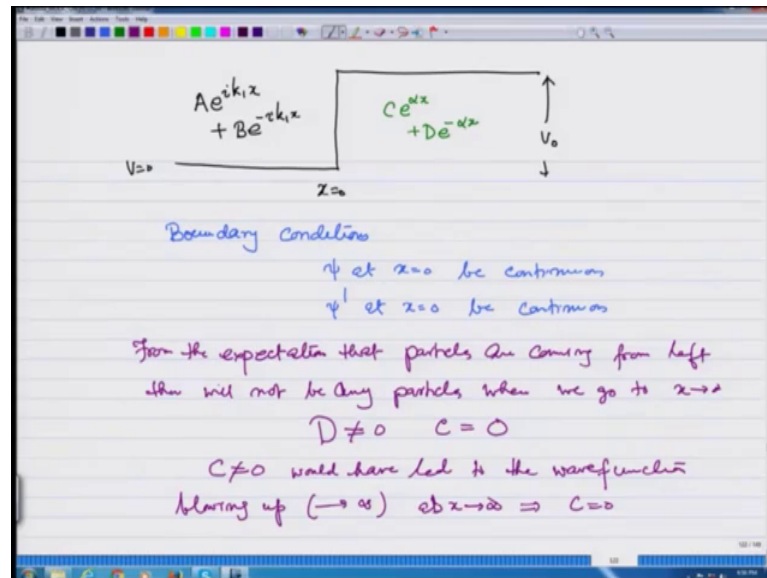 File Edit View Insert Actions Tools Help
Ae^{ik₁x}
+ Be^{-ik₁x}
Ce^{αx}
+ De^{-αx}
V₀
V=0
x=0
Boundary Conditions
ψ at x=0 be continuous
ψ' at x=0 be continuous
From the expectation that particles are coming from left
there will not be any particles when we go to x→∞
D ≠ 0 C = 0
C ≠ 0 would have led to the wavefunction
blowing up (→ ∞) at x→∞ ⇒ C=0